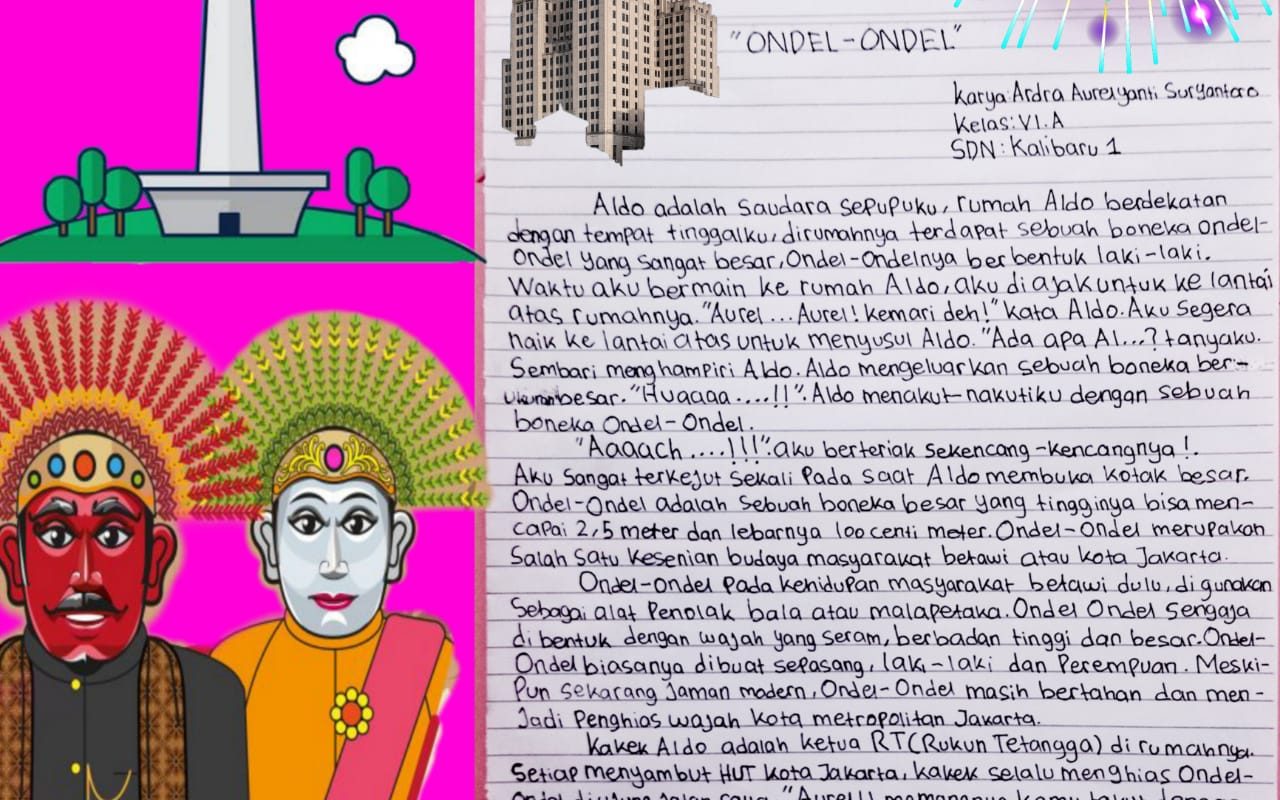 "ONDEL-ONDEL"
Karya: Ardra Aurelyanti Suryantoro
Kelas: VI.A
SDN: Kalibaru 1
Aldo adalah saudara sepupuku, rumah Aldo berdekatan
dengan tempat tinggalku, dirumahnya terdapat sebuah boneka ondel-
ondel yang sangat besar, Ondel-Ondelnya berbentuk laki-laki.
Waktu aku bermain ke rumah Aldo, aku diajak untuk ke lantai
atas rumahnya. "Aurel...Aurel! kemari deh!" kata Aldo. Aku segera
naik ke lantai atas untuk menyusul Aldo. "Ada apa Al...? tanyaku.
Sembari menghampiri Aldo. Aldo mengeluarkan sebuah boneka ber-
ukuran besar. "Huaaaa....!!". Aldo menakut-nakutiku dengan sebuah
boneka Ondel-Ondel.
"Aaaach....!!!". aku berteriak sekencang-kencangnya!.
Aku sangat terkejut sekali pada saat Aldo membuka kotak besar.
Ondel-Ondel adalah sebuah boneka besar yang tingginya bisa men-
capai 2,5 meter dan lebarnya 100 centi meter. Ondel-Ondel merupakan
salah satu kesenian budaya masyarakat betawi atau kota Jakarta.
Ondel-ondel pada kehidupan masyarakat betawi dulu, di gunakan
sebagai alat penolak bala atau malapetaka. Ondel Ondel sengaja
di bentuk dengan wajah yang seram, berbadan tinggi dan besar. Ondel-
Ondel biasanya dibuat sepasang, laki-laki dan Perempuan. Meski-
pun sekarang jaman modern, Ondel-Ondel masih bertahan dan men-
jadi penghias wajah kota metropolitan Jakarta.
Kakek Aldo adalah ketua RT (Rukun Tetangga) di rumahnya.
Setiap menyambut HUT kota Jakarta, kakek selalu menghias Ondel-